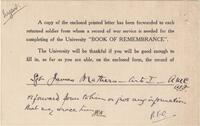 A copy of the enclosed printed letter has been forwarded to each
returned soldier from whom a record of war service is needed for the
completing of the University "BOOK OF REMEMBRANCE."
The University will be thankful if you will be good enough to
fill in, so far as you are able, on the enclosed form, the record of
Sgt. James Mathers - Arts I - AMC
or forward form to him or give any information
that may reach him.